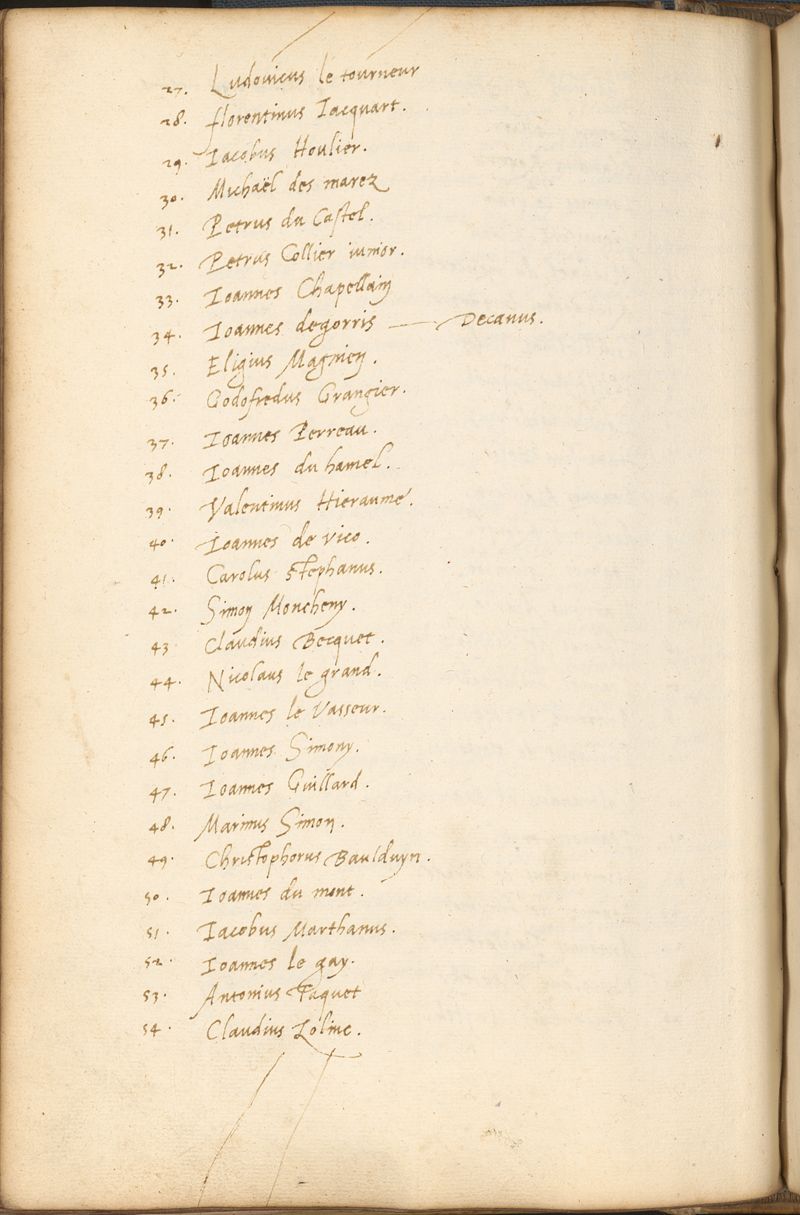 27. Ludovicus le tourneur
28. florentinus Iacquart.
29. Iacobus Houlier.
30. Michaël des marez
31. Petrus du Castel.
32. Petrus Collier iunior.
33. Ioannes Chapellain
34. Ioannes degorris — Decanus.
35. Eligius Magnien.
36. Godofredus Grangier.
37. Ioannes Perreau.
38. Ioannes du hamel.
39. Valentinus Hieraume.
40. Ioannes de vico.
41. Carolus stephanus.
42. Simon Moncheny.
43 Claudius Becquet.
44. Nicolaus le grand.
45. Ioannes le Vasseur.
46. Ioannes Simony.
47. Ioannes Guillard.
48. Marinus Simon.
49. Christophorus Baulduyn.
50. Ioannes du mont.
51. Iacobus Marthanus.
52. Ioannes le gay.
53. Antonius Paquet
54. Claudius